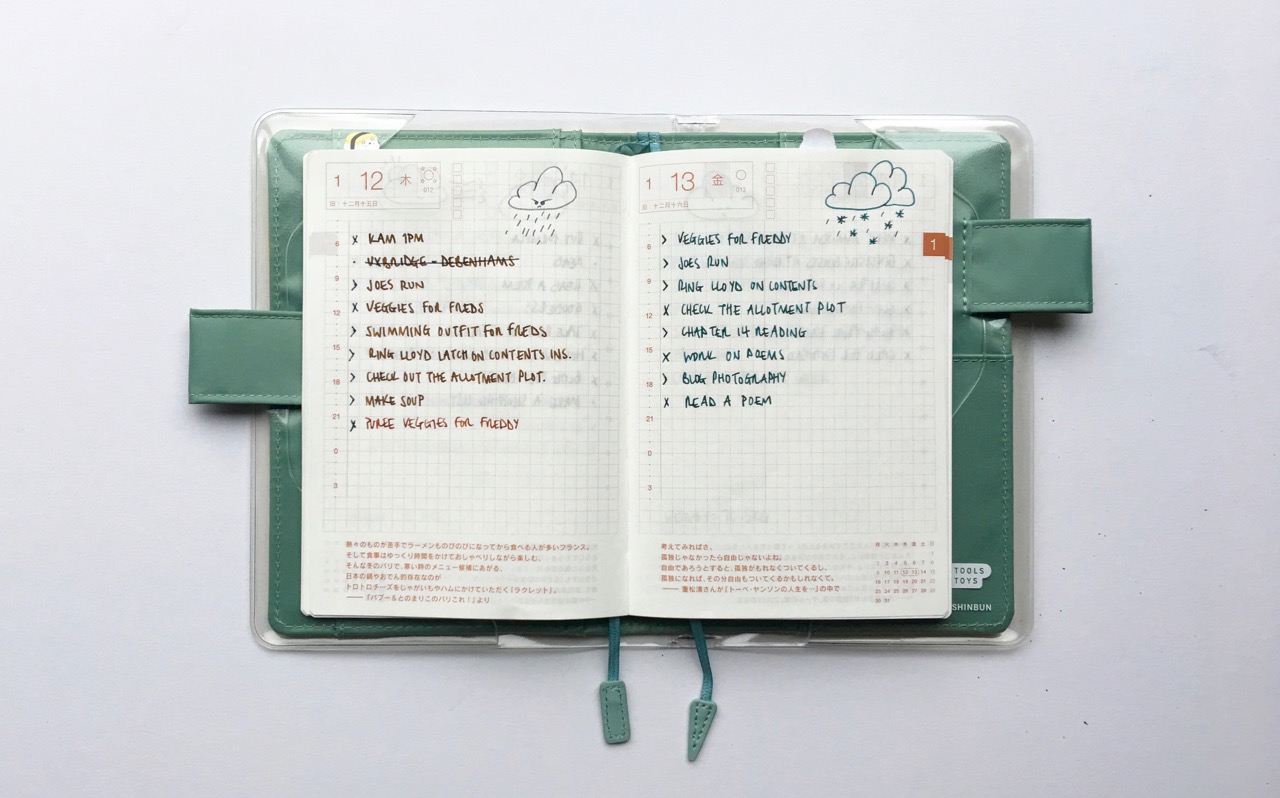 1 12 木
012
旧 十二月十五日
6
9
12
15
18
21
0
3
x KAM 1PM
· UXBRIDGE - DEBENHAMS
> JOES RUN
x VEGGIES FOR FREDS
> SWIMMING OUTFIT FOR FREDS
> RING LLOYD LATCH ON CONTENTS INS.
> CHECK OUT THE ALLOTMENT PLOT.
> MAKE SOUP
x PUREE VEGGIES FOR FREDDY
熱々のものが苦手でラーメンものびのびになってから食べる人が多いフランス。
そして食事はゆっくり時間をかけておしゃべりしながら楽しむ。
そんな冬のパリで、寒い時のメニュー候補にあがる、
日本の鍋やおでん的存在なのが
トロトロチーズをじゃがいもやハムにかけていただく「ラクレット」。
——「バブーとのとまりこのパリこれ!」より
1 13 金
012
旧 十二月十六日
6
9
12
15
18
21
0
3
> VEGGIES FOR FREDDY
> JOES RUN
> RING LLOYD ON CONTENTS
x CHECK THE ALLOTMENT PLOT
> CHAPTER 14 READING
x WORK ON POEMS
> BLOG PHOTOGRAPHY
x READ A POEM
1
考えてみればさ、
孤独じゃなかったら自由じゃないよね。
自由であろうとすると、孤独がもれなくついてくるし、
孤独になれば、その分自由もついてくるかもしれなくて。
——重松清さんが『トーベ・ヤンソンの人生を…』の中で
月 火 水 木 金 土 日
1
2 3 4 5 6 7 8
9 10 11 12 13 14 15
16 17 18 19 20 21 22
23 24 25 26 27 28 29
30 31
TOOLS
TOYS
SHINBUN